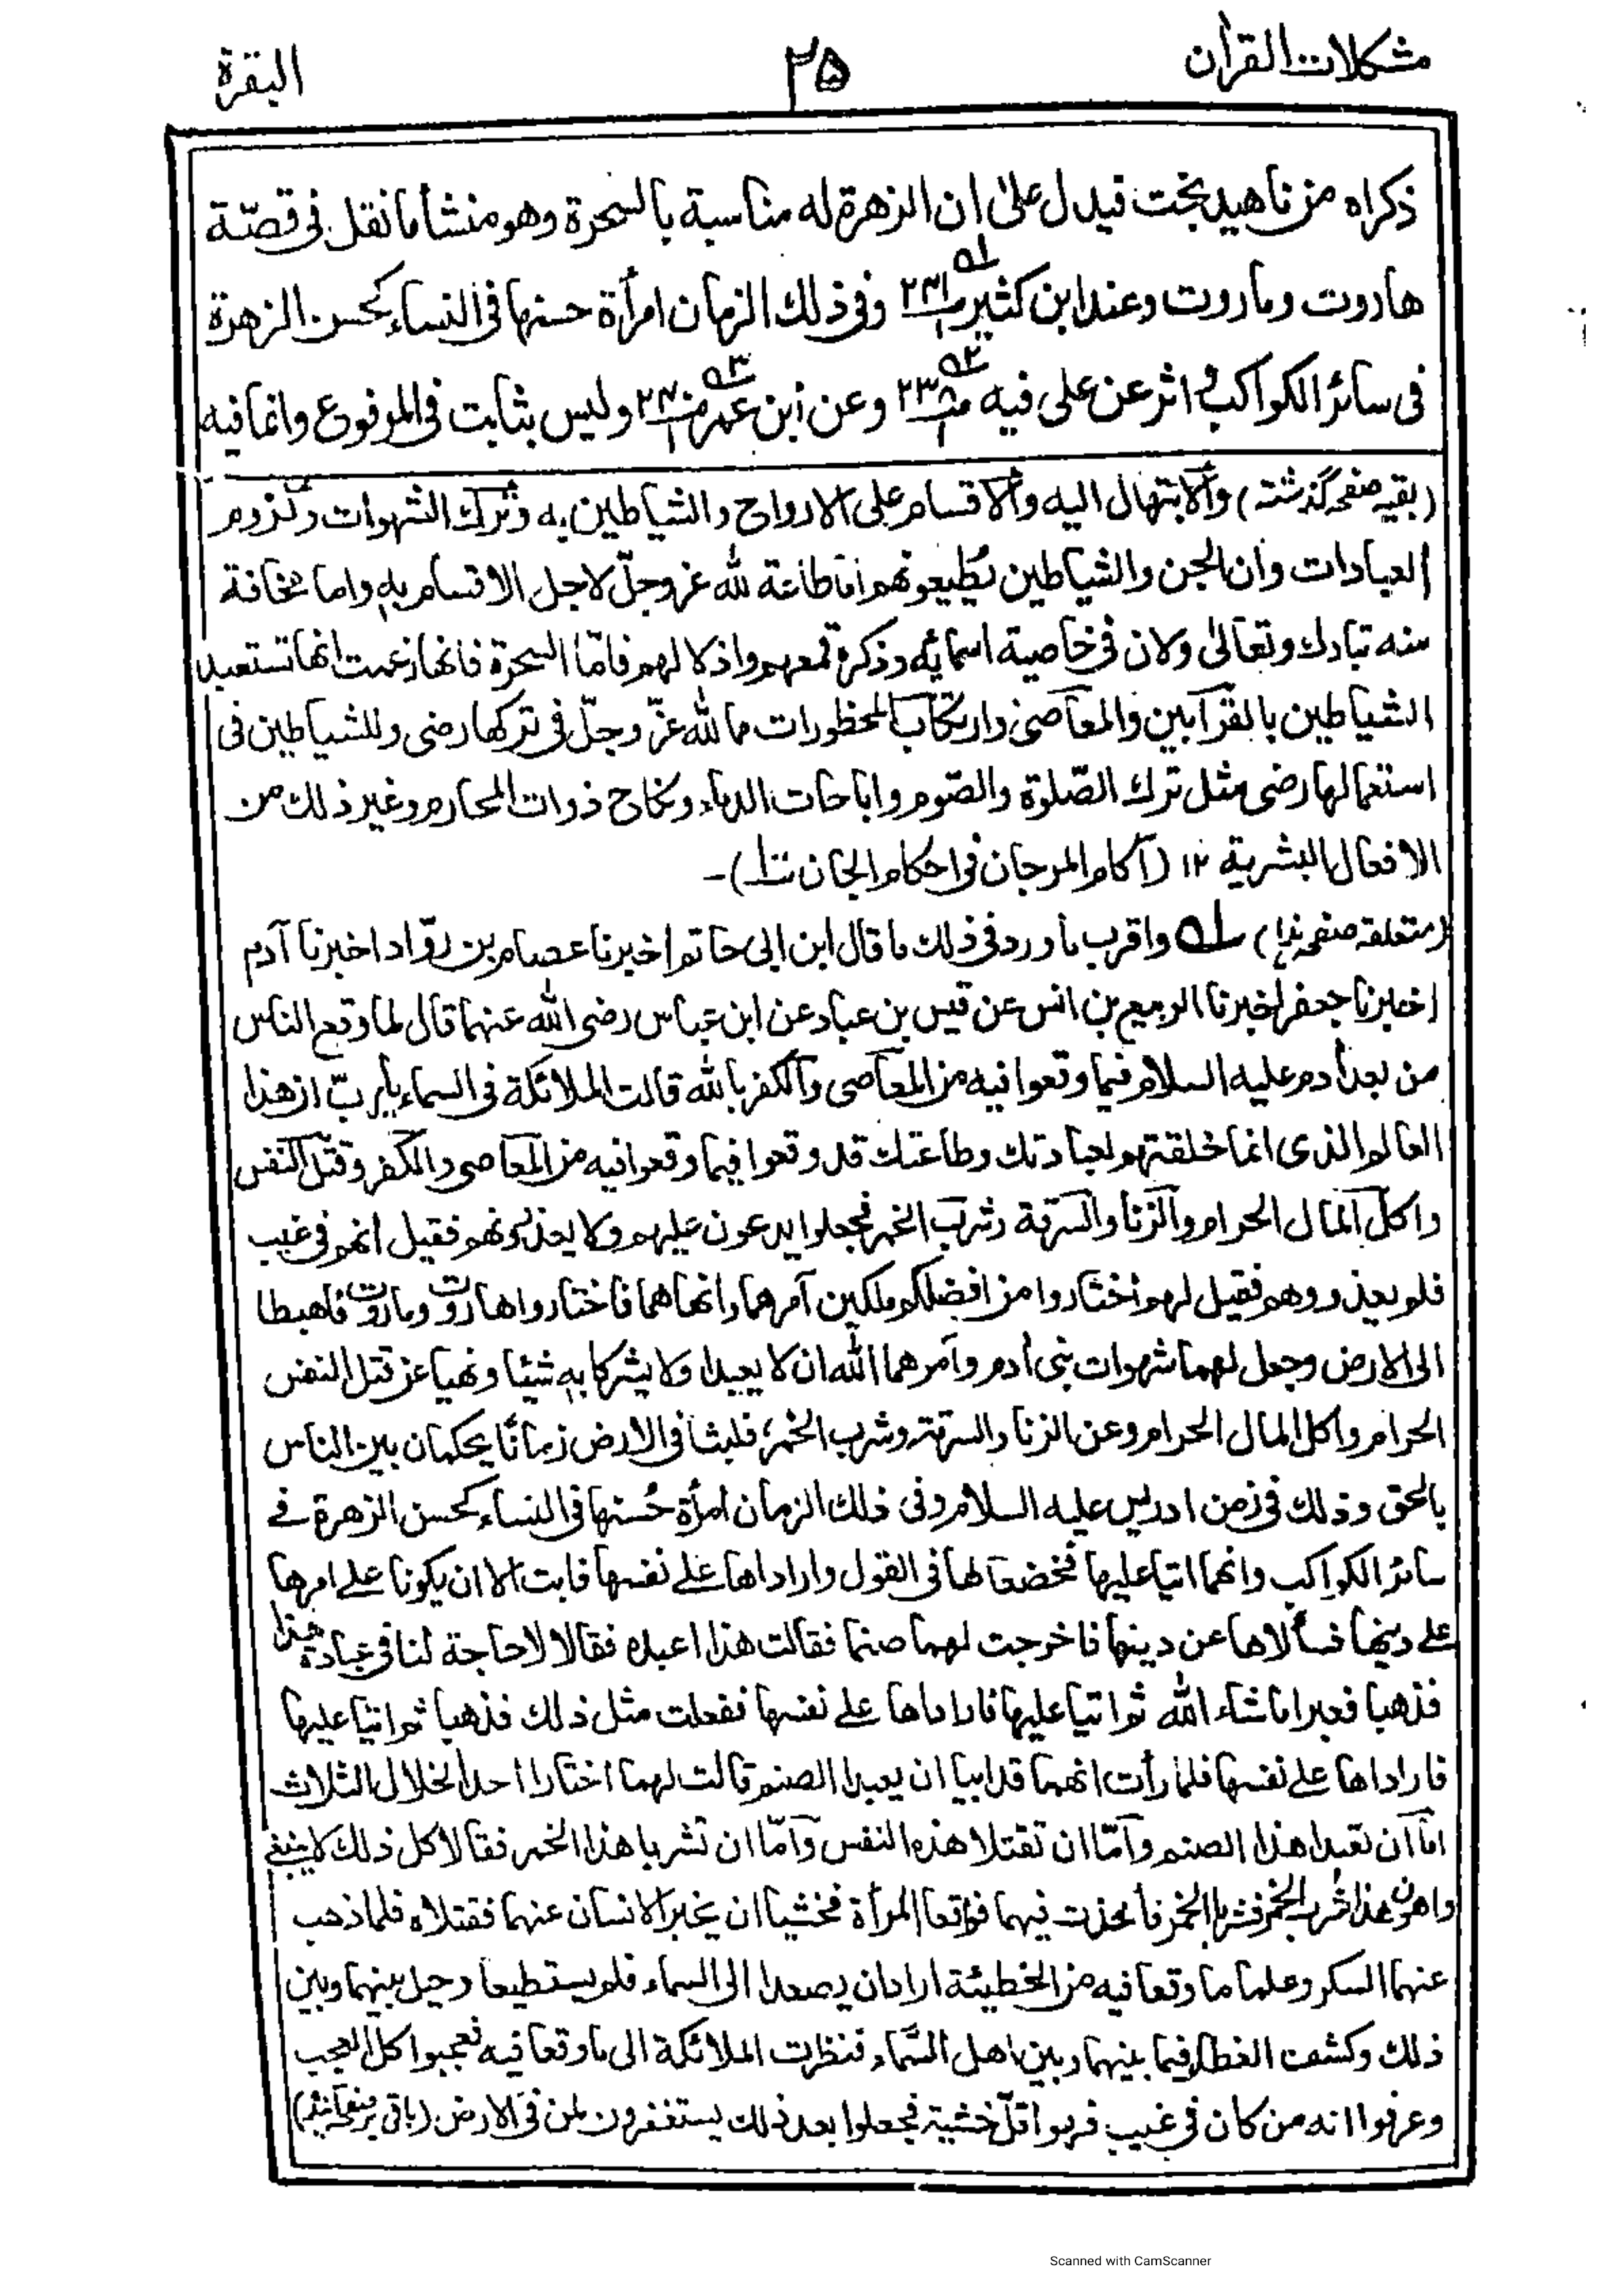 مشکلات القرآن
۲۵
البقرة
ذكراه من ناهيد بخت فيدل على ان الزهرة له مناسبة بالسحرة وهو منشأ ما نقل فى قصّة
هاروت وماروت وعند ابن كثير ۲۳۱ وفى ذلك الزمان امرأة حسنها فى النساء كحسن الزهرة
فى سائر الكواكب و اثر عن على فيه وعن ابن عمر وليس بثابت فى المرفوع وانما فيه
(بقيه صفحہ گذشتہ) والابتهال اليه والاقسام على الارواح والشياطين به وترك الشهوات ولزوم
العبادات وان الجن والشياطين يطيعونهم اما طاعة لله عز وجلّ لاجل الاقسام به واما مخافة
منه تبارك وتعالىٰ ولان فى خاصية اسمائه وذكره قمعهم واذلالهم فامّا السحرة فانها زعمت انها تستعبد
الشياطين بالقرابين والمعاصى وارتكاب المحظورات مما لله عزّ وجلّ فى تركها رضى وللشياطين فى
استعمالها رضى مثل ترك الصّلوة والصّوم واباحات الدماء ونكاح ذوات المحارم وغير ذلك من
الافعال البشرية ۱۲ (آكام المرجان فى احكام الجان)-
(متعلقہ صفحہ ہذا) لـه واقرب ما ورد فى ذلك ما قال ابن ابى حاتم اخبرنا عصام بن روّاد اخبرنا آدم
اخبرنا جعفر اخبرنا الربيع بن انس عن قيس بن عباد عن ابن عباس رضى الله عنهما قال لما وقع الناس
من بعد أدم عليه السلام فيما وقعوا فيه من المعاصى والكفر بالله قالت الملائكة فى السماء يا ربّ ان هذا
العالم الذى انما خلقتهم لعبادتك وطاعتك قد وقعوا فيما وقعوا فيه من المعاصى والكفر وقتل النفس
واكل المال الحرام والزنا والسرقة وشرب الخمر فجعلوا يدعون عليهم ولا يعذرونهم فقيل انهم فى غيب
فلم يعذروهم فقيل لهم اختاروا من افضلكم ملكين آمرهما وانهاهما فاختاروا هاروت وماروت فاهبطا
الى الارض وجعل لهما شهوات بنى أدم وآمرهما الله ان لا يعبدا ولا يشركا به شيئا ونهيا عن قتل النفس
الحرام واكل المال الحرام وعن الزنا والسرقة وشرب الخمر، فلبثا فى الارض زمانًا يحكمان بين الناس
بالحق وذلك فى زمن ادريس عليه السلام وفى ذلك الزمان امرأة حُسنها فى النساء كحسن الزهرة فے
سائر الكواكب وانهما اتيا عليها فخضعا لها فى القول واراداها علے نفسها فابت الا ان يكونا علے امرها
علے دينها فسألاها عن دينها فاخرجت لهما صنما فقالت هذا اعبده فقالا لا حاجة لنا فى عبادة هذا
فذهبا فعبرا ماشاء الله ثم اتيا عليها فاراداها علے نفسها ففعلت مثل ذلك فذهبا ثم اتيا عليها
فاراداها علے نفسها فلما رأت انهما قد ابيا ان يعبدا الصنم قالت لهما اختارا احدا الخلال الثلاث
امّا ان تعبدا هذا الصنم وامّا ان تقتلا هذه النفس وامّا ان تشربا هذا الخمر فقالا كل ذلك لا ينبغے
واهون هذا شرب الخمر فشربا الخمر فأخذت فيهما فواقعا المرأة فخشيا ان يخبر الانسان عنهما فقتلاه فلما ذهب
عنهما السكر وعلما ما وقعا فيه من الخطيئة ارادان يصعدا الى السماء فلم يستطيعا وحيل بينهما وبين
ذلك وكشف الغطاء فيما بينهما وبين اهل السّماء فنظرت الملائكة الى ما وقعا فيه فعجبوا كل العجب
وعرفوا انه من كان فى غيب فهو اقلّ خشية فجعلوا بعد ذلك يستغفرون لمن فى الارض (باقى بر صفحہ آئندہ)
Scanned with CamScanner